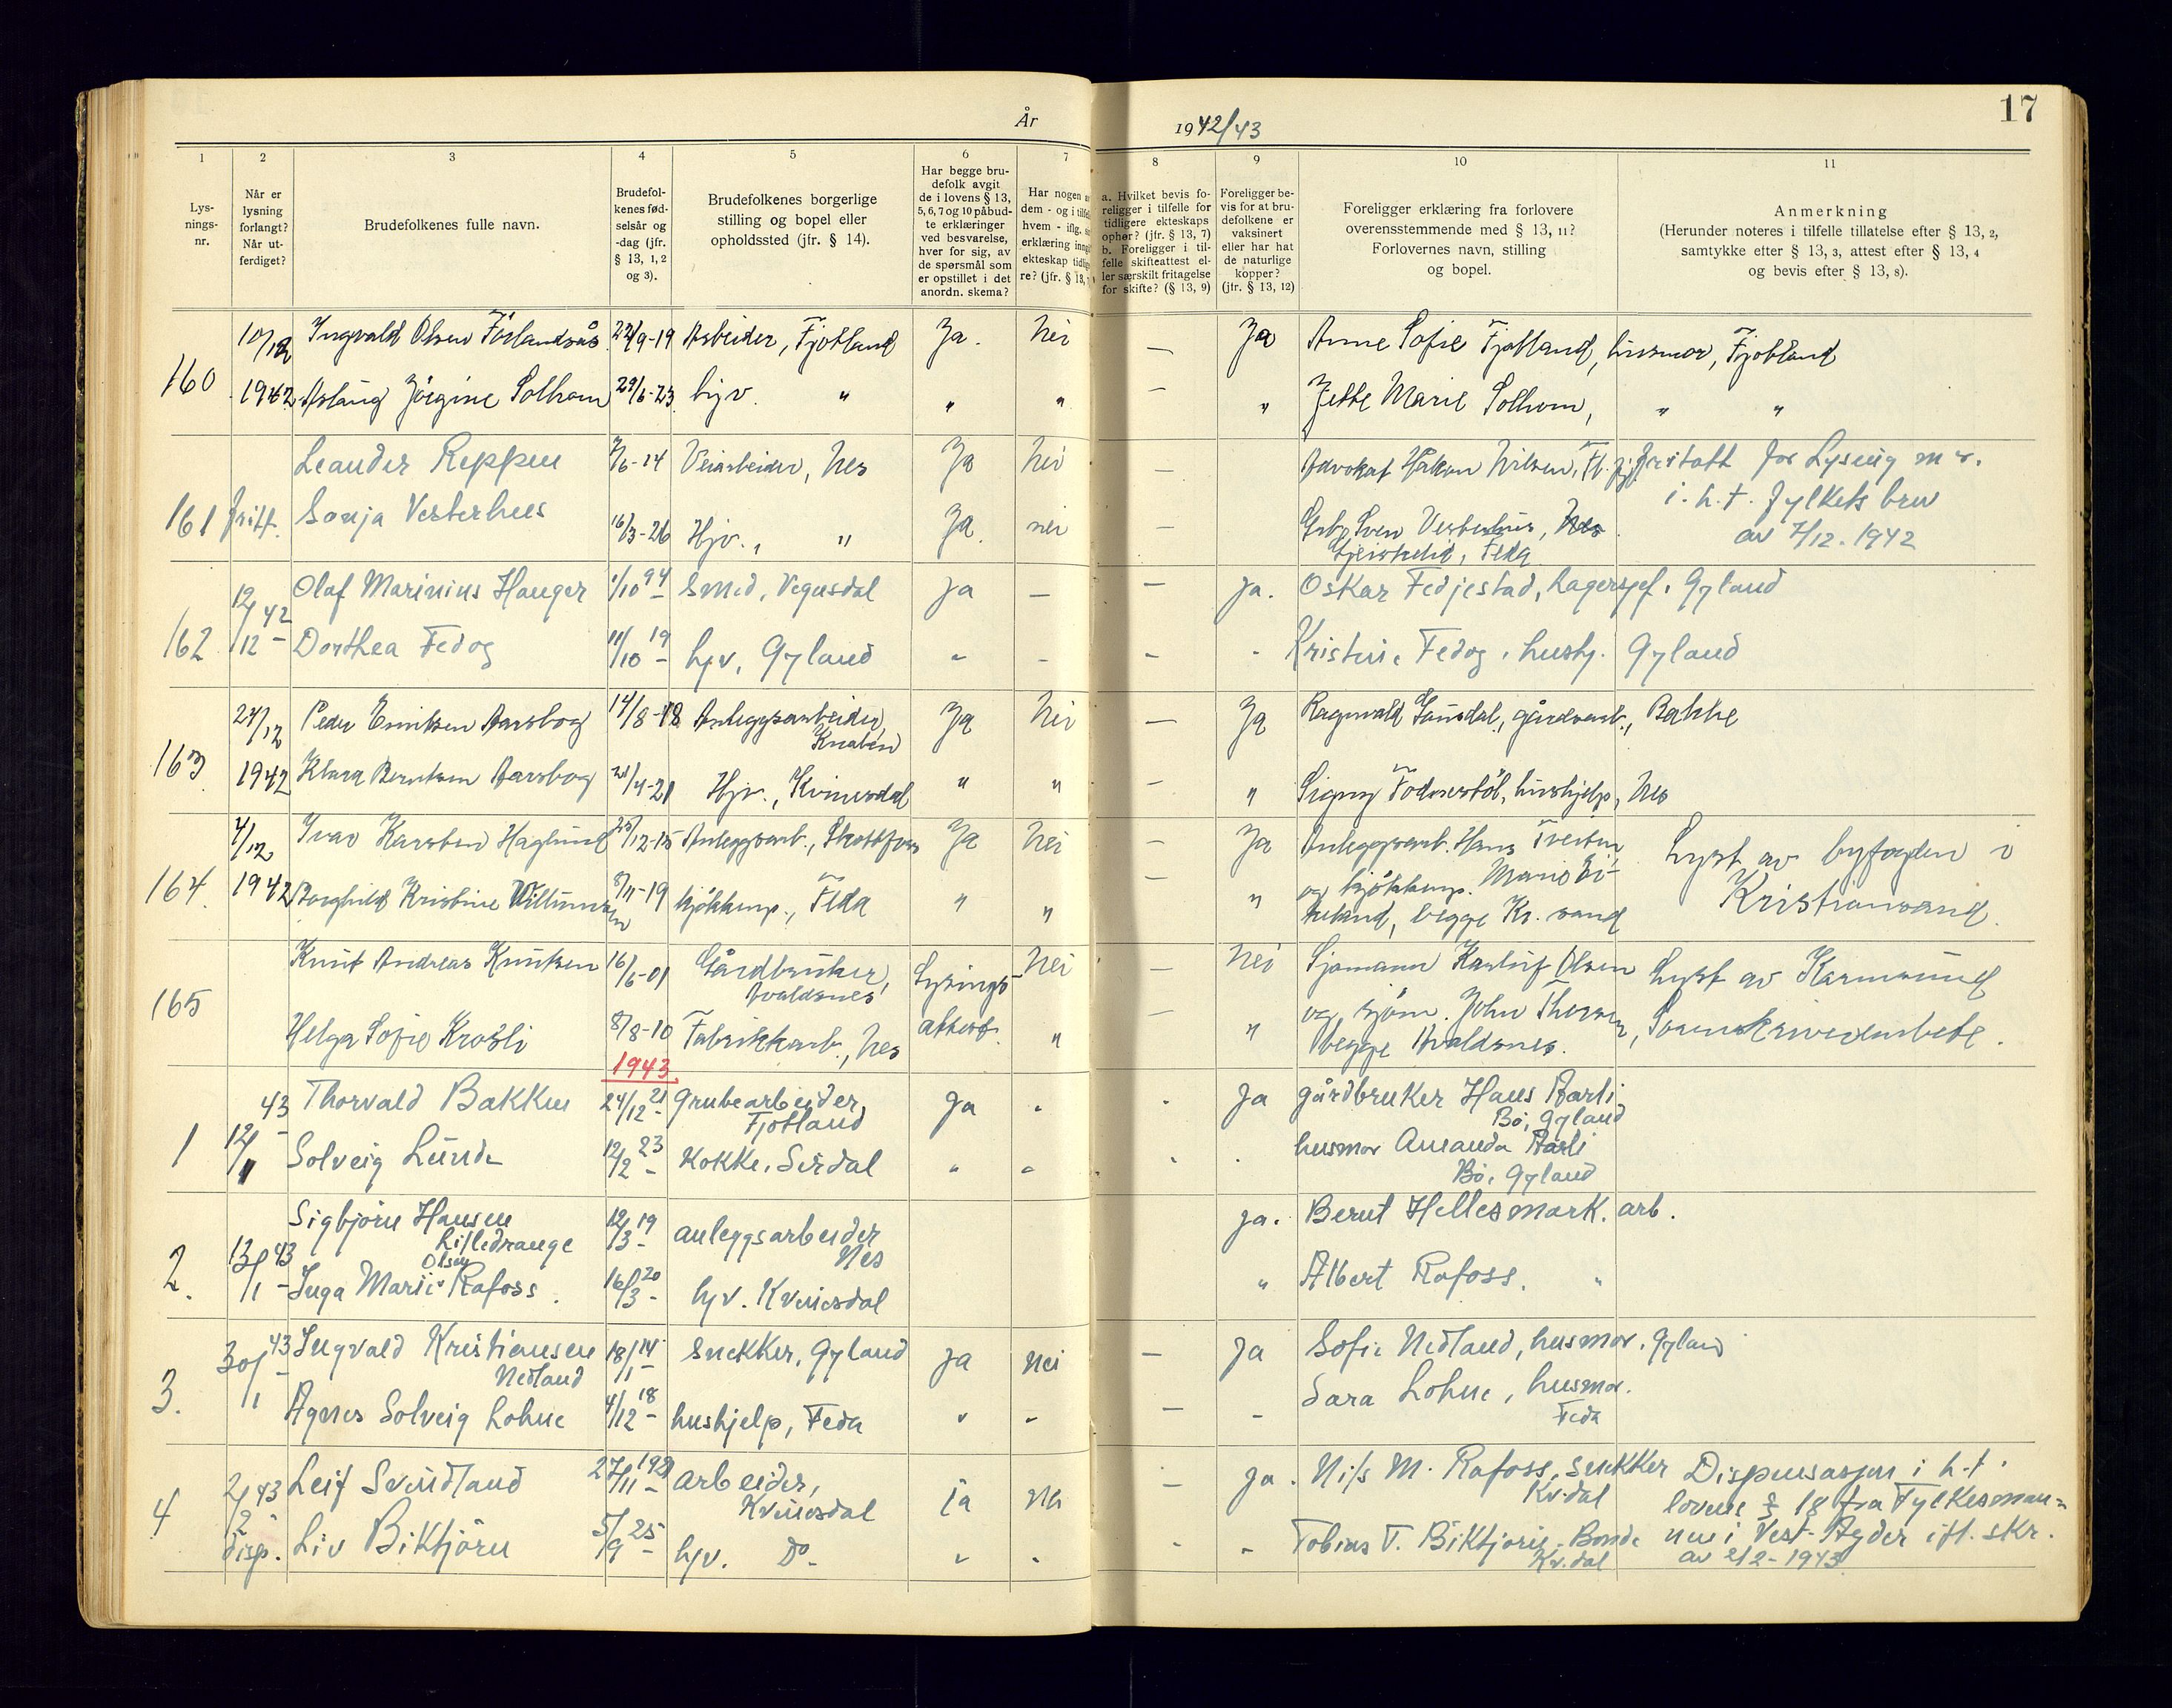 17
År 1942/43
1 2 3 4 5 6 7 8 9 10 11
Lys-
nings-
nr.
Når er
lysning
forlangt?
Når ut-
ferdiget?
Brudefolkenes fulle navn.
Brudefol-
kenes fød-
selsår og
-dag (jfr.
§ 13, 1, 2
og 3).
Brudefolkenes borgerlige
stilling og bopel eller
opholdssted (jfr. § 14).
Har begge bru-
defolk avgit
de i lovens § 13,
5, 6, 7 og 10 påbud-
te erklæringer
ved besvarelse,
hver for sig, av
de spørsmål som
er opstillet i det
anordn. skema?
Har nogen
dem - og i tilfel
hvem - iflg.
erklæring inng
ekteskap tidlig
re? (jfr. § 13,
a. Hvilket bevis fo-
religger i tilfelle for
tidligere ekteskaps
ophør? (jfr. § 13, 7)
b. Foreligger i til-
felle skifteattest el-
ler særskilt fritagelse
for skifte? (§ 13, 9)
Foreligger be-
vis for at bru-
defolkene er
vaksinert
eller har hat
de naturlige
kopper?
(jfr. § 13, 12)
Foreligger erklæring fra forlovere
overensstemmende med § 13, 11?
Forlovernes navn, stilling
og bopel.
Anmerkning
(Herunder noteres i tilfelle tillatelse efter § 13, 2,
samtykke efter § 13, 3, attest efter § 13, 4
og bevis efter § 13, 8).
160 10/12 Ingvald Olsen Förlandsås 22/9-19 Arbeider, Fjotland Ja. Nei — Ja Anne Sofie Fjotland, husmor, Fjotland
1942 Aslaug Jörgine Solhom 29/6-23 hjv. " " " — " Jette Marie Solhom, " "
161 fritt. Leander Reppen 7/6-14 Veiarbeider, Nes Ja Nei — Advokat Håkon Nilsen, Fl.fj. fritatt for Lysning m.v.
i.h.t. fylkets brev
av 7/12. 1942
Sonja Vesterhus 16/3-26 Hjv., " Ja. nei — Grb. Sven Vesterhus, Nes
Feda
162 12/12 42 Olaf Marinius Hauger 1/10 94 Smed, Vegusdal Ja — — Ja. Oskar Fedjestad, lagersjef, Gyland
Dorthea Fedog 11/10 19 hjv, Gyland " - — - Kristine Fedog, hushj. Gyland
163 27/12 Peder Enriksen Aarsbog 14/8-18 Anleggsarbeider, Ja Nei — Ja Ragnvald Gausdal, gårdsarb., Bakke
Knaben
1942 Klara Berntsen Aarsbog 21/4-21 Hjv., Kvinesdal " " — " Signy Fodnestöl, hushjelp, Nes
164. 7/12 Ivar Karsten Haglund 25/12-15 Anleggsarb., Skottfoss Ja Nei — Ja Anleggsarb. Hans Tveiten, Lyst av byfogden i
1942 Borghild Kristine Willumsen 8/11-19 kjökkenp., Feda " " — " og kjökkenp. Marie
begge Kr. sand Kristiansand.
165 Knut Andreas Knutsen 16/6-01 Gårdbruker, Lysings- Nei — Nei Sjømann Karluf Olsen Lyst av Karmsund
Avaldsnes
Helga Sofie Kroßli 8/8-10 Fabrikkarb., Nes attest. " — " og sjöm. John Thorsen, Sorenskriverembete.
begge Avaldsnes.
1943
1 12/1 43 Thorvald Bakken 24/12 21 Grubearbeider, Ja - - Ja gårdbruker Hans Aarli
Fjotland Bø, Gyland
Solveig Lunde 12/2 23 Kokke, Sirdal " - - - husmor Amanda Aarli
Bø, Gyland
2. 13/1 43 Sigbjørn Hansen 12/3 19 anleggsarbeider Ja. Bernt Hellesmark, arb.
Lilledrange Nes
Olsen
Inga Marie Rafoss. 16/3 20 hjv. Kvinesdal " Albert Rafoss. "
3. 30/1 43 Ingvald Kristiansen 18/1 14 Snekker, Gyland Ja Nei — Ja Sofie Nedland, husmor, Gyland
Nedland
Agnes Solveig Lohne 4/12 18 hushjelp, Feda " - — - Sara Lohne, husmor.
Feda
4 2/2 43 Leif Svindland 27/11 1921 arbeider, ja nei — Ja. Nils M. Rafoss, snekker Dispensasjon i h.t.
Kvinesdal Kv.dal lovene § 18 fra Fylkesman-
disp. Liv Biktjørn 5/9 25 hjv. Do- " - - - Tobias T. Biktjørn, Bonde nen i Vest-Agder ifl. skr.
Kv.dal av 2/2-1943